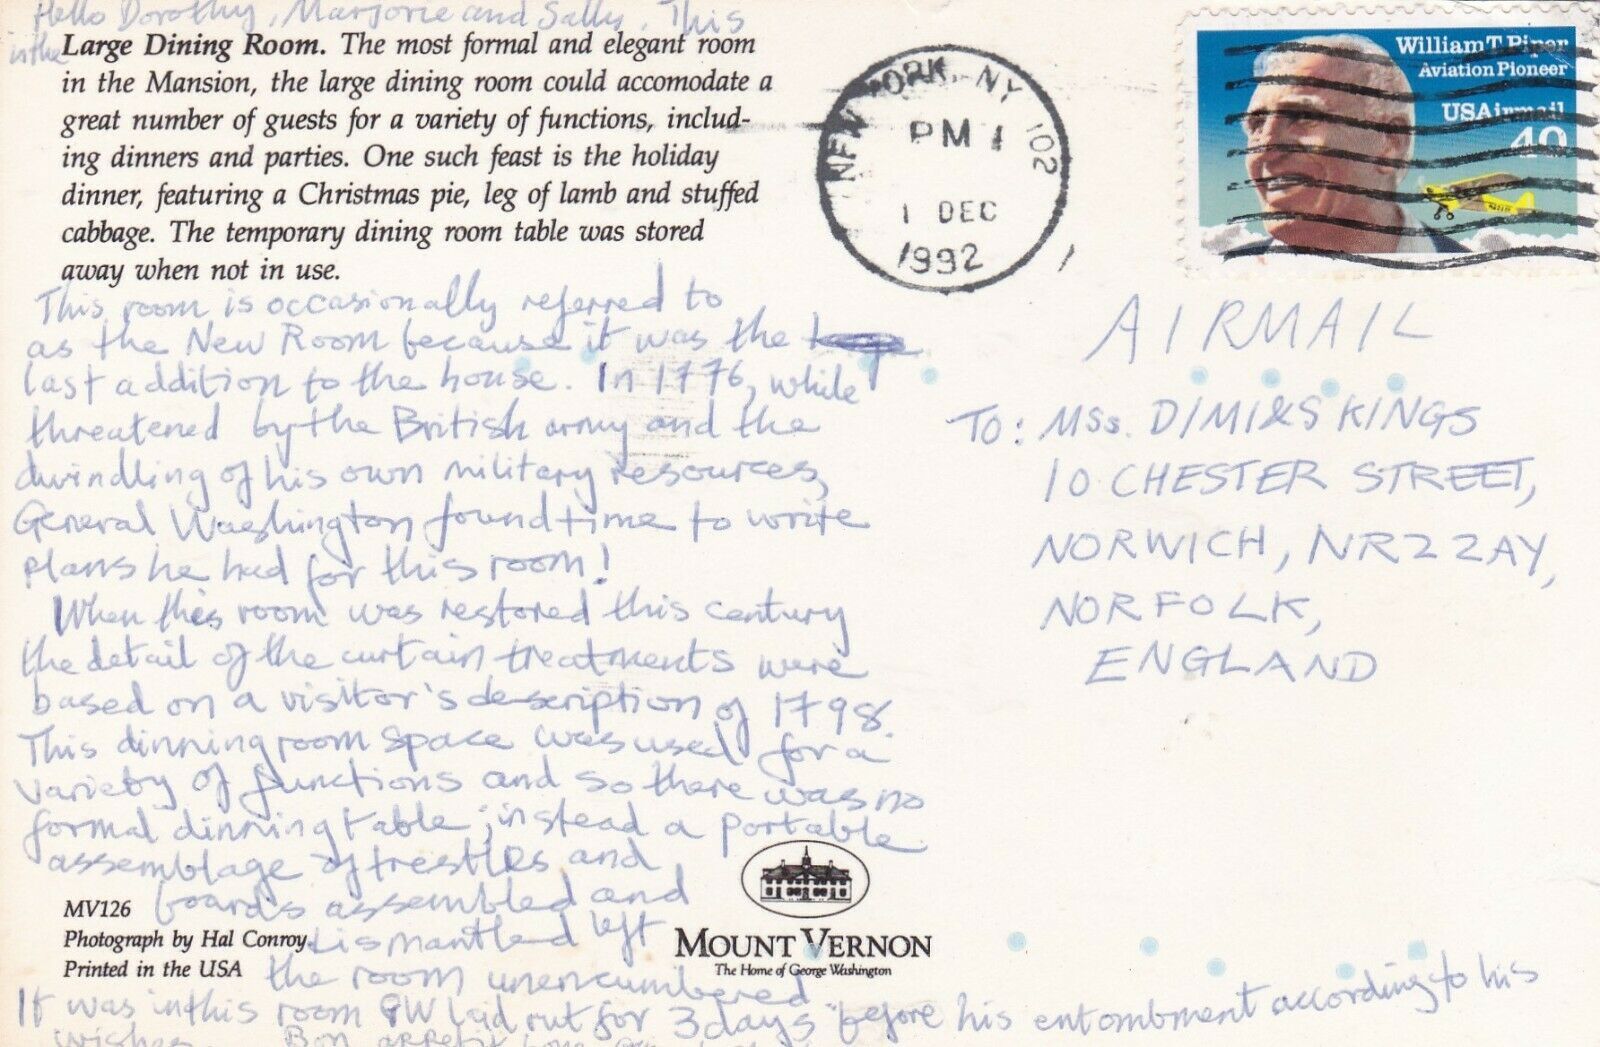 Hello Dorothy, Marjorie and Sally. This
is the
Large Dining Room. The most formal and elegant room
in the Mansion, the large dining room could accomodate a
great number of guests for a variety of functions, includ-
ing dinners and parties. One such feast is the holiday
dinner, featuring a Christmas pie, leg of lamb and stuffed
cabbage. The temporary dining room table was stored
away when not in use.
This room is occasionally referred to
as the New Room because it was the
last addition to the house. In 1776, while
threatened by the British army and the
dwindling of his own military resources,
General Washington found time to write
plans he had for this room!
When this room was restored this century
the detail of the curtain treatments were
based on a visitor's description of 1798.
This dinning room space was used for a
variety of functions and so there was no
formal dinning table; instead a portable
assemblage of trestles and
boards assembled and
dismantled left
the room unencumbered
It was in this room GW laid out for 3 days before his entombment according to his
wishes. Bon appetit
MV126
Photograph by Hal Conroy
Printed in the USA
MOUNT VERNON
The Home of George Washington
NEW YORK, NY 102
PM 1
1 DEC
1992
William T. Piper
Aviation Pioneer
USAirmail
40
AIRMAIL
TO: MSS. DIMI&S KINGS
10 CHESTER STREET,
NORWICH, NR2 2AY,
NORFOLK,
ENGLAND